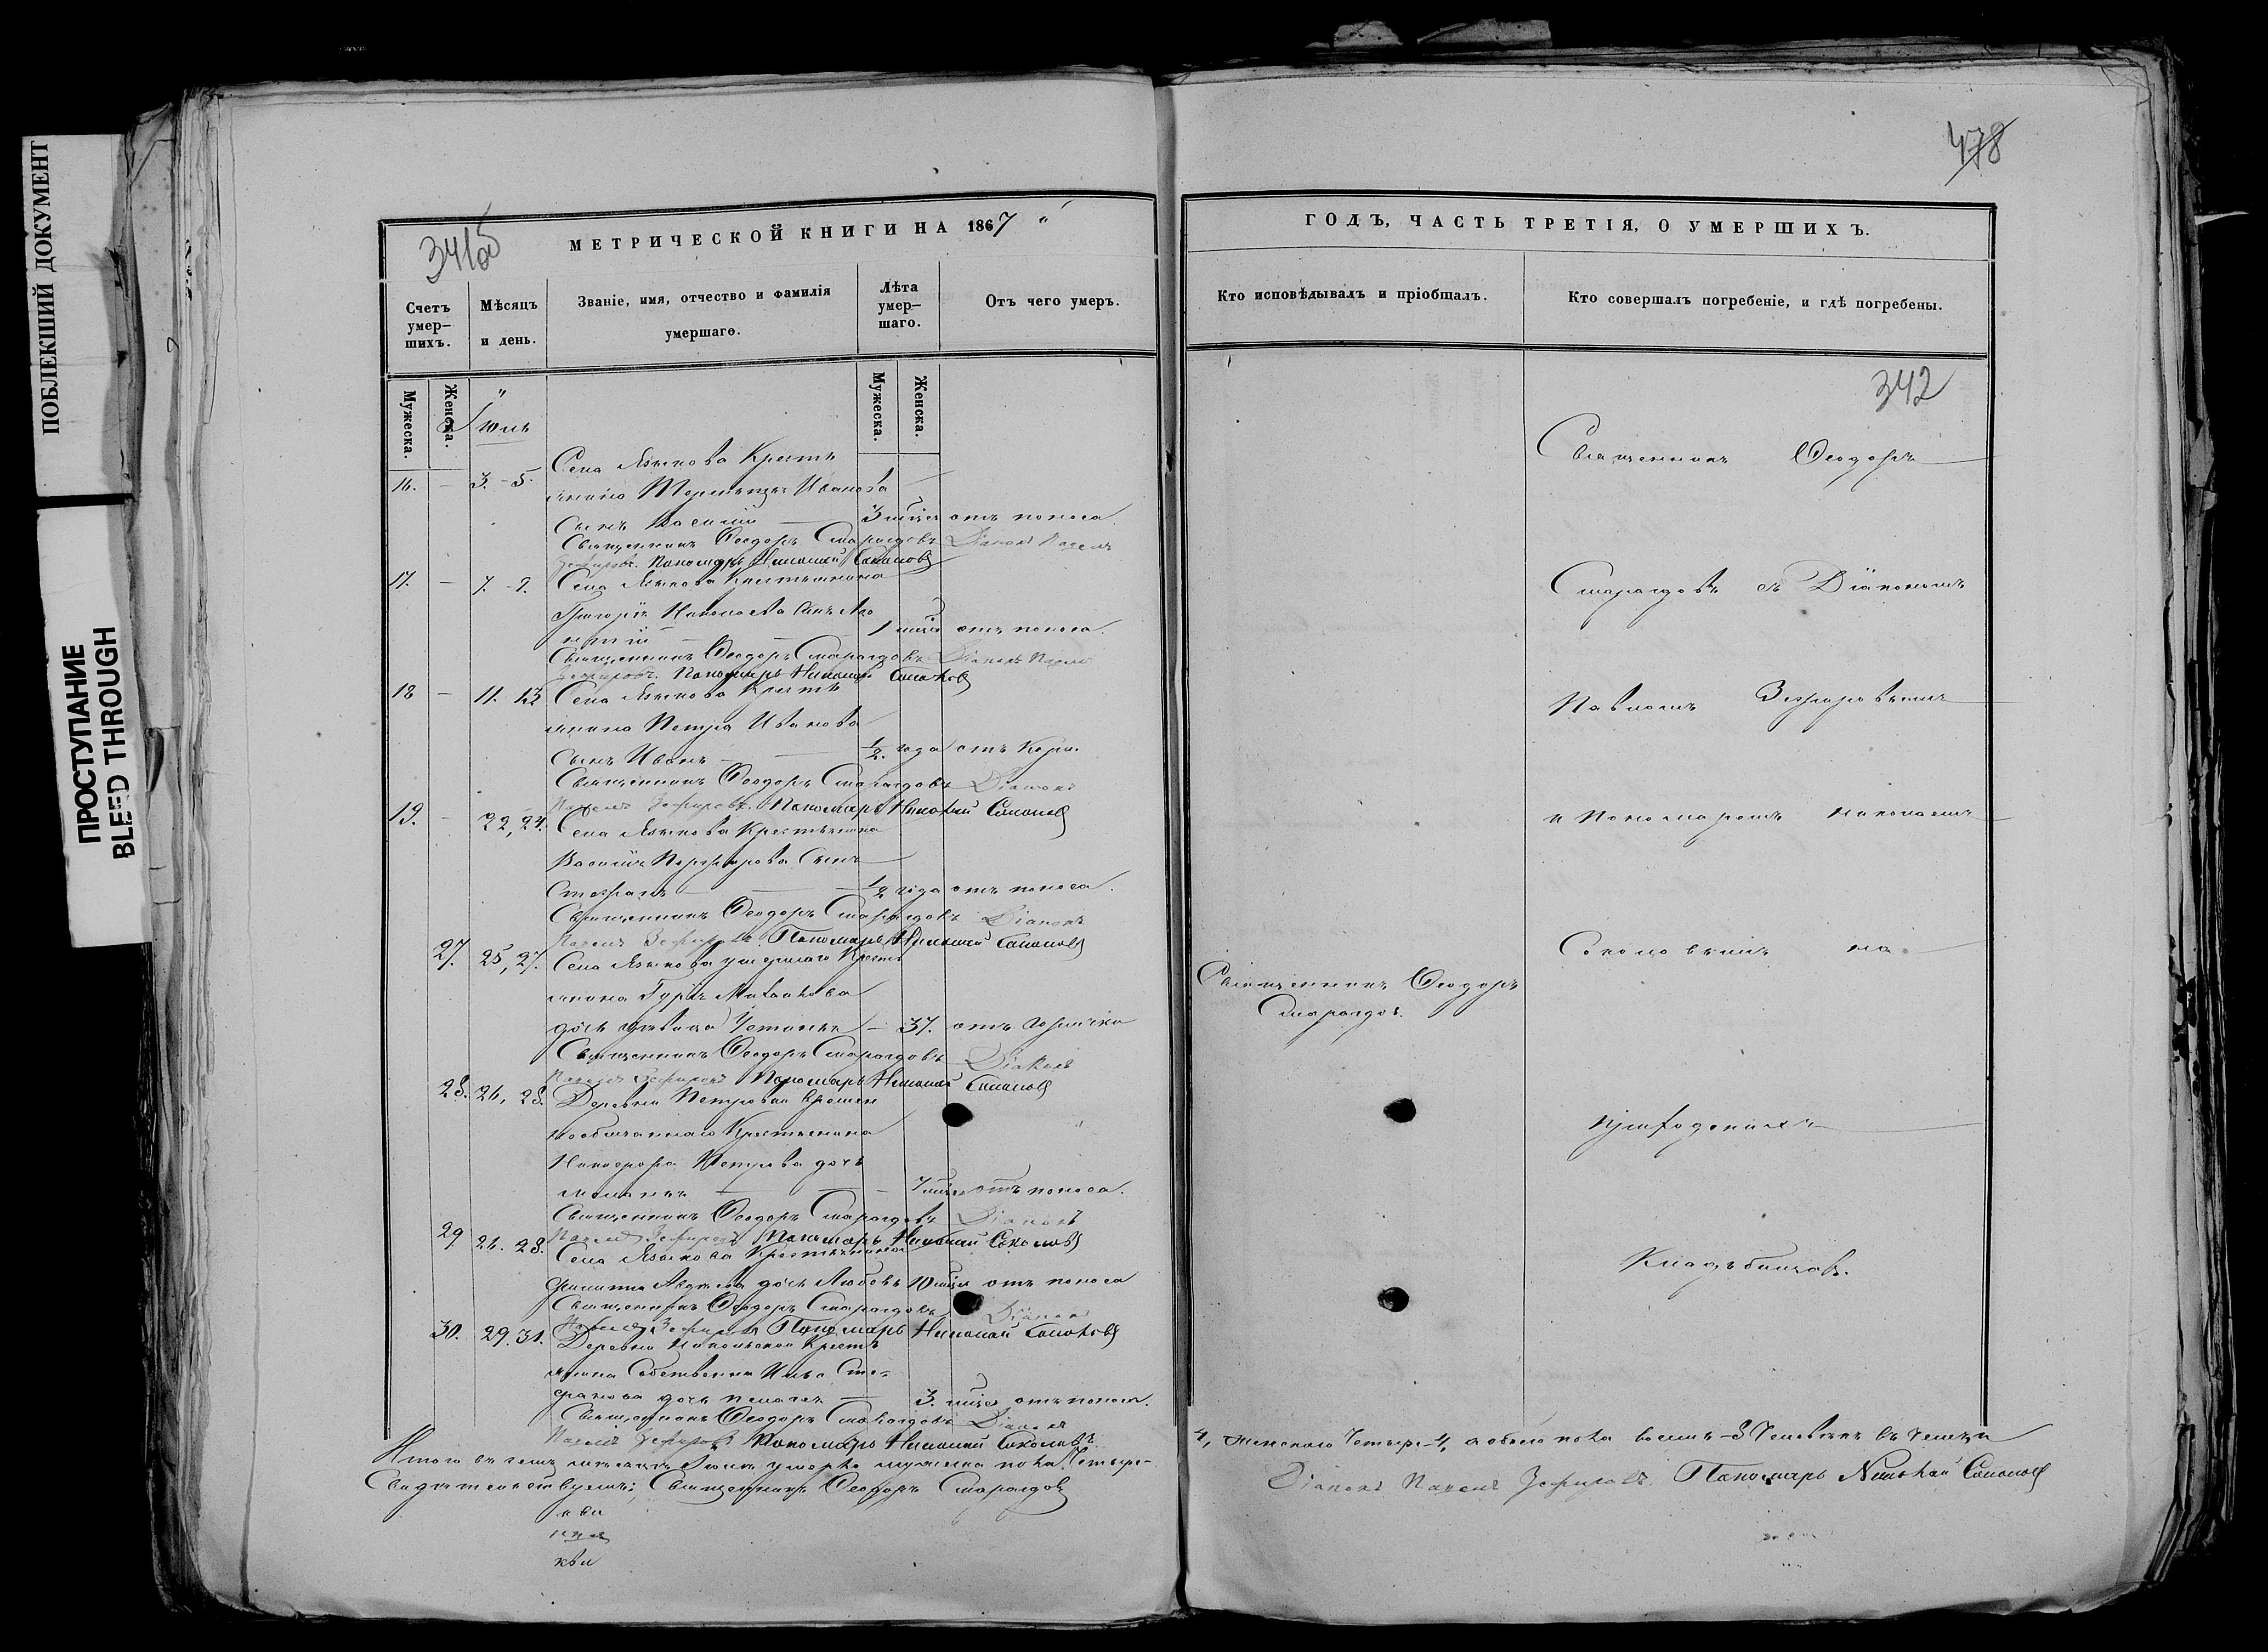 ПОБЛЕКШИЙ ДОКУМЕНТ
ПРОСТУПАНИЕ
BLEED THROUGH
478
341об
МЕТРИЧЕСКОЙ КНИГИ НА 1867
Счетъ умер–шихъ.
Мѣсяцъ и день.
Званіе, имя, отчество и фамилія умершаго.
Лѣта умер–шаго.
Отъ чего умеръ.
Мужеска.
Женска.
Мужеска.
Женска.
Іюль
16. — 3. - 5. Села Языкова Кресть
янина Терентья Иванова
Сынъ Василій — 3 мѣся отъ поноса.
Священникъ Ѳеодоръ Смарагдовъ Діаконъ Павелъ
Зефировъ. Пономарь Николай Соколовъ
17. — 7. - 9. Села Языкова Крестьянина
Григорія Николаева Сынъ
1 мѣся отъ поноса.
Священникъ Ѳеодоръ Смарагдовъ Діаконъ Павелъ
Зефировъ. Пономарь Николай Соколовъ
18 — 11. 13 Села Языкова Кресть
янина Петра Иванова
Сынъ Иванъ — ½ года отъ Кори.
Священникъ Ѳеодоръ Смарагдовъ Діаконъ
Павелъ Зефировъ. Пономарь Николай Соколовъ
19. — 22, 24. Села Языкова Крестьянина
Василія Порфирова Сынъ
Стефанъ — ½ года отъ поноса.
Священникъ Ѳеодоръ Смарагдовъ Діаконъ
Павелъ Зефировъ. Пономарь Николай Соколовъ
27. 25, 27. Села Языкова умершаго Кресть
янина Гурія
дочь дѣвица — 37. отъ горячки
Священникъ Ѳеодоръ Смарагдовъ Діаконъ
Павелъ Зефировъ Пономарь Николай Соколовъ
28. 26, 28. Деревни Петровки Времен
нообязаннаго Крестьянина
Никифора Петрова дочь
— 7 мѣся отъ поноса.
Священникъ Ѳеодоръ Смарагдовъ Діаконъ
Павелъ Зефировъ Пономарь Николай Соколовъ
29 26. 28. Села Языкова Крестьянина
Филиппа Авдѣева дочь Любовь 10 мѣся отъ поноса
Священникъ Ѳеодоръ Смарагдовъ Діаконъ
Павелъ Зефировъ Пономарь Николай Соколовъ
30. 29. 31. Деревни Никольской Кресть
янина Собственни Ильи Сте-
фанова дочь Пелагея — 3. мѣся отъ поноса.
Священникъ Ѳеодоръ Смарагдовъ Діаконъ
Павелъ Зефировъ Пономарь Николай Соколовъ.
Итого въ семъ мѣсяцѣ Іюлѣ умерло мужеска пола Четыре-
Свидѣтельствуемъ: Священникъ Ѳеодоръ Смарагдовъ
ГОДЪ, ЧАСТЬ ТРЕТІЯ, О УМЕРШИХЪ.
Кто исповѣдывалъ и пріобщалъ.
Кто совершалъ погребеніе, и гдѣ погребены.
342
Священникъ Ѳеодоръ
Смарагдовъ съ Діакономъ
Павломъ Зефировымъ
и Пономаремъ Николаемъ
Соколовымъ на
Священникъ Ѳеодоръ
Смарагдов.
приходскихъ
Кладбищахъ.
4, женскаго Четыре 4, а обоего пола восемь 8 Человѣкъ
Діаконъ Павелъ Зефировъ Пономарь Николай Соколовъ